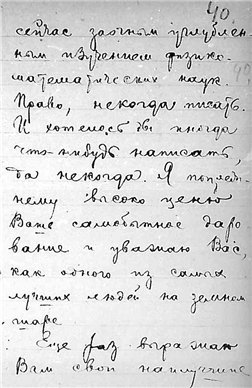 40.
сейчас заочным углублен-
ным изучением физико-
математических наук.
Право, некогда писать.
И хотелось бы иногда
что-нибудь написать,
да некогда. Я по-преж-
нему высоко ценю
Ваше самобытное даро-
вание и уважаю Вас,
как одного из самых
лучших людей на земном
шаре
Еще раз выражаю
Вам свои наилучшие